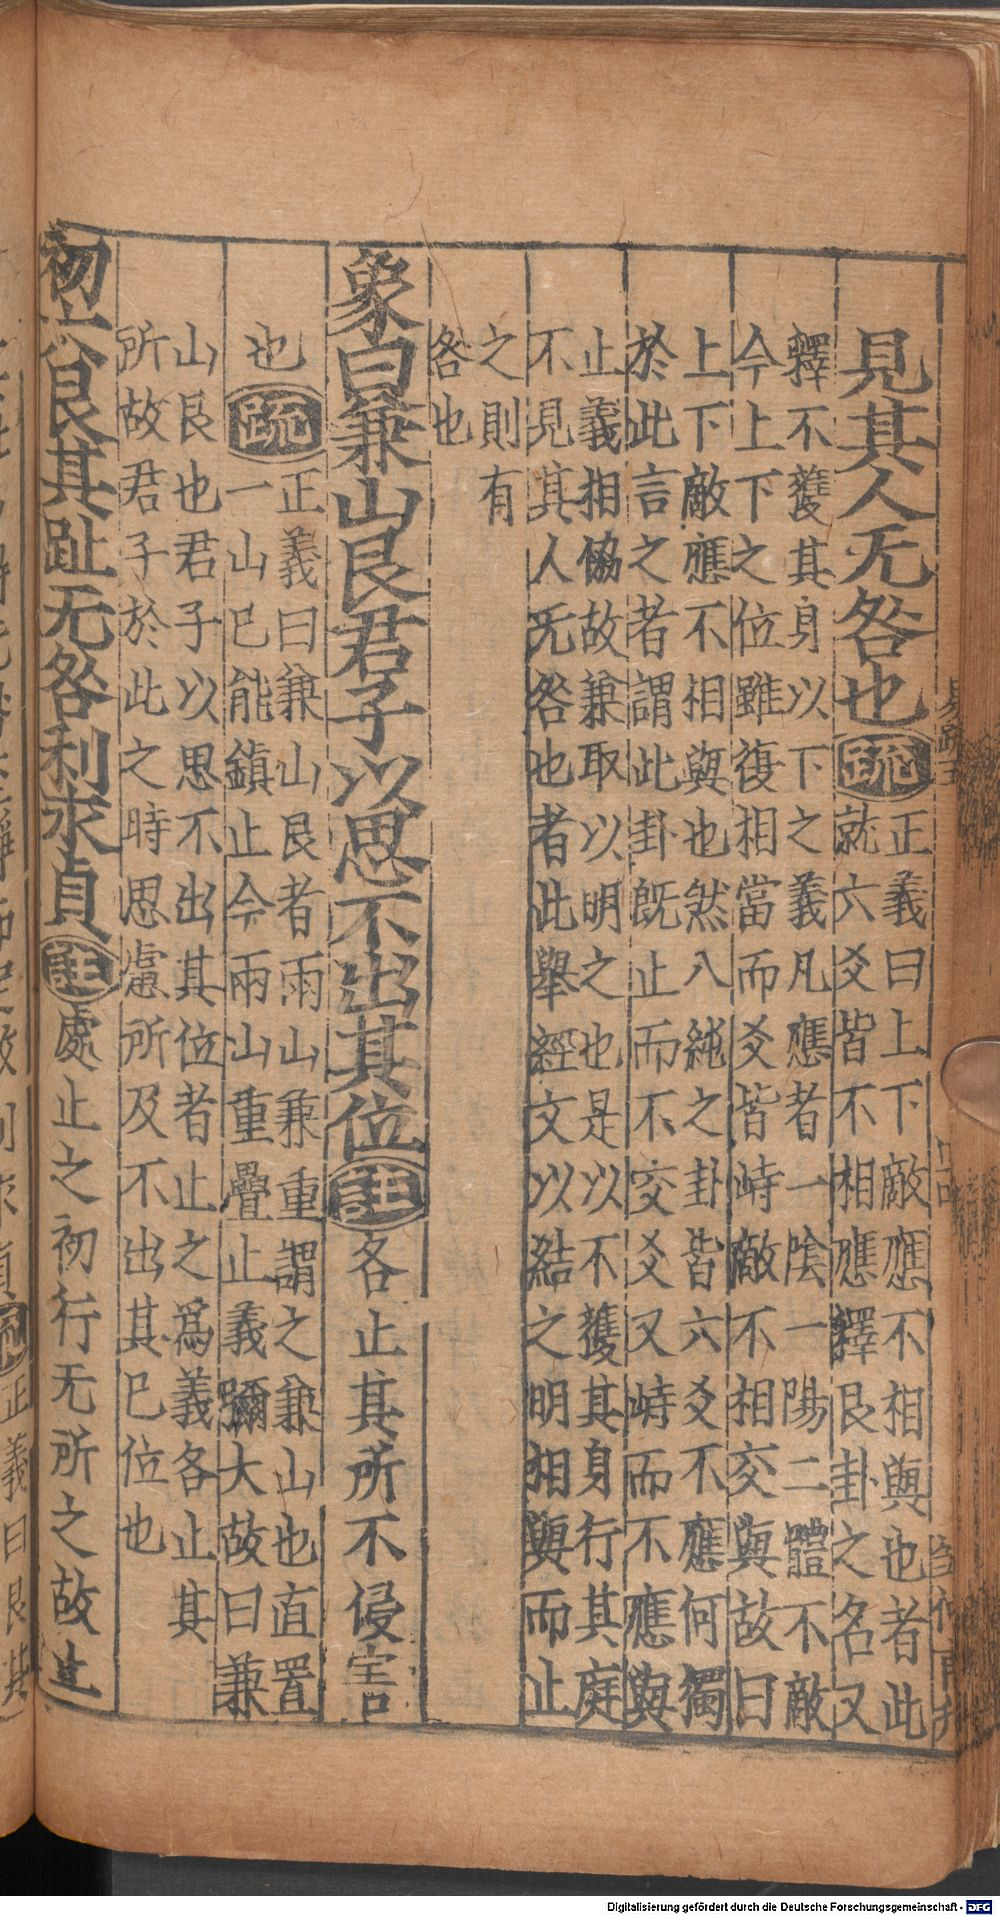 見其人无咎也疏正義曰上下敵應不相與也者此
就六爻皆不相應釋艮卦之名又
釋不獲其身以下之義凡應者一陰一陽二體不敵
今上下之位雖復相當而爻皆峙敵不相交與故曰
上下敵應不相與也然八純之卦皆六爻不應何獨
於此言之者謂此卦旣止而不交爻又峙而不應與
止義相恊故兼取以明之也是以不獲其身行其庭
不見其人无咎也者此舉經文以結之明相與而止
之則有
咎也
象曰兼山艮君子以思不出其位註各止其所不侵害
也疏正義曰兼山艮者兩山兼重謂之兼山也直置
一山已能鎮止今兩山重疊止義彌大故曰兼
山艮也君子以思不出其位者止之爲義各止其
所故君子於此之時思慮所及不出其已位也
初六艮其趾无咎利永貞註處止之初行无所之故止
Digitalisierung gefördert durch die Deutsche Forschungsgemeinschaft - DFG